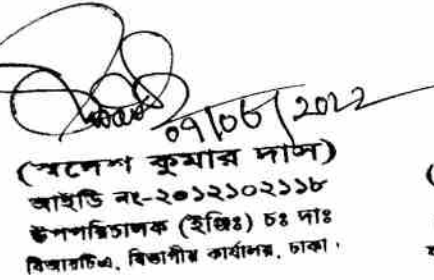 ০৭/০৬/2022
(স্বদেশ কুমার দাস)
আইডি নং-২০১২১০২১১৮
উপপরিচালক (ইঞ্জিঃ) চঃ দাঃ
বিআরটিএ, বিভাগীয় কার্যালয়, ঢাকা।
(